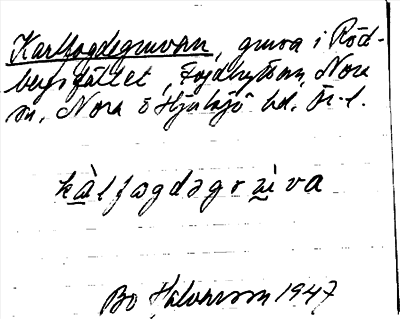 Karlfogdegruvan, gruva i Röd-
bergsfältet, Fogdhyttan, Nora
sn, Nora o Hjulsjö bd. Ör. l.
kàlfogdəgrùva
Bo Halvarson 1947